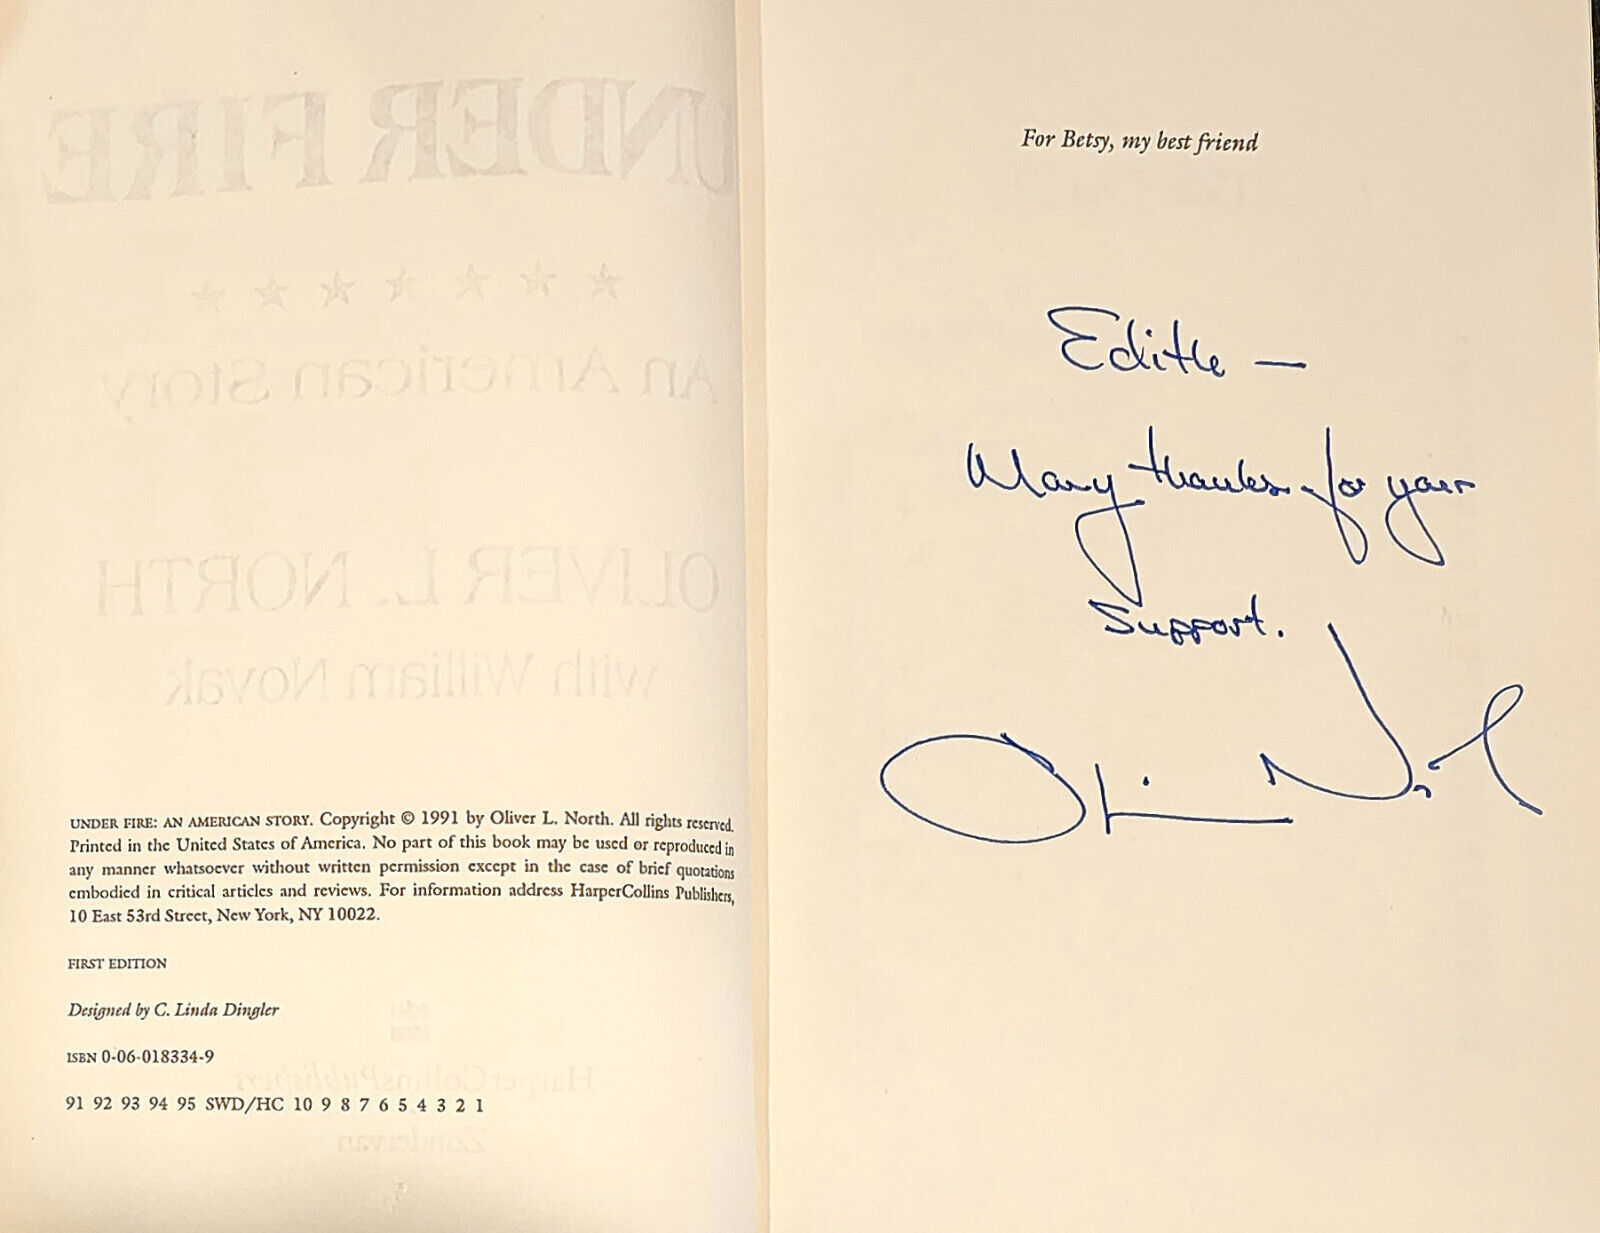 UNDER FIRE
An American Story
OLIVER L. NORTH
with William Novak
UNDER FIRE: AN AMERICAN STORY. Copyright © 1991 by Oliver L. North. All rights reserved.
Printed in the United States of America. No part of this book may be used or reproduced in
any manner whatsoever without written permission except in the case of brief quotations
embodied in critical articles and reviews. For information address HarperCollins Publishers,
10 East 53rd Street, New York, NY 10022.
FIRST EDITION
Designed by C. Linda Dingler
ISBN 0-06-018334-9
HarperCollinsPublishers
91 92 93 94 95 SWD/HC 10 9 8 7 6 5 4 3 2 1
Zondervan
For Betsy, my best friend
Edith —
Many thanks for your
Support.
Oliver North